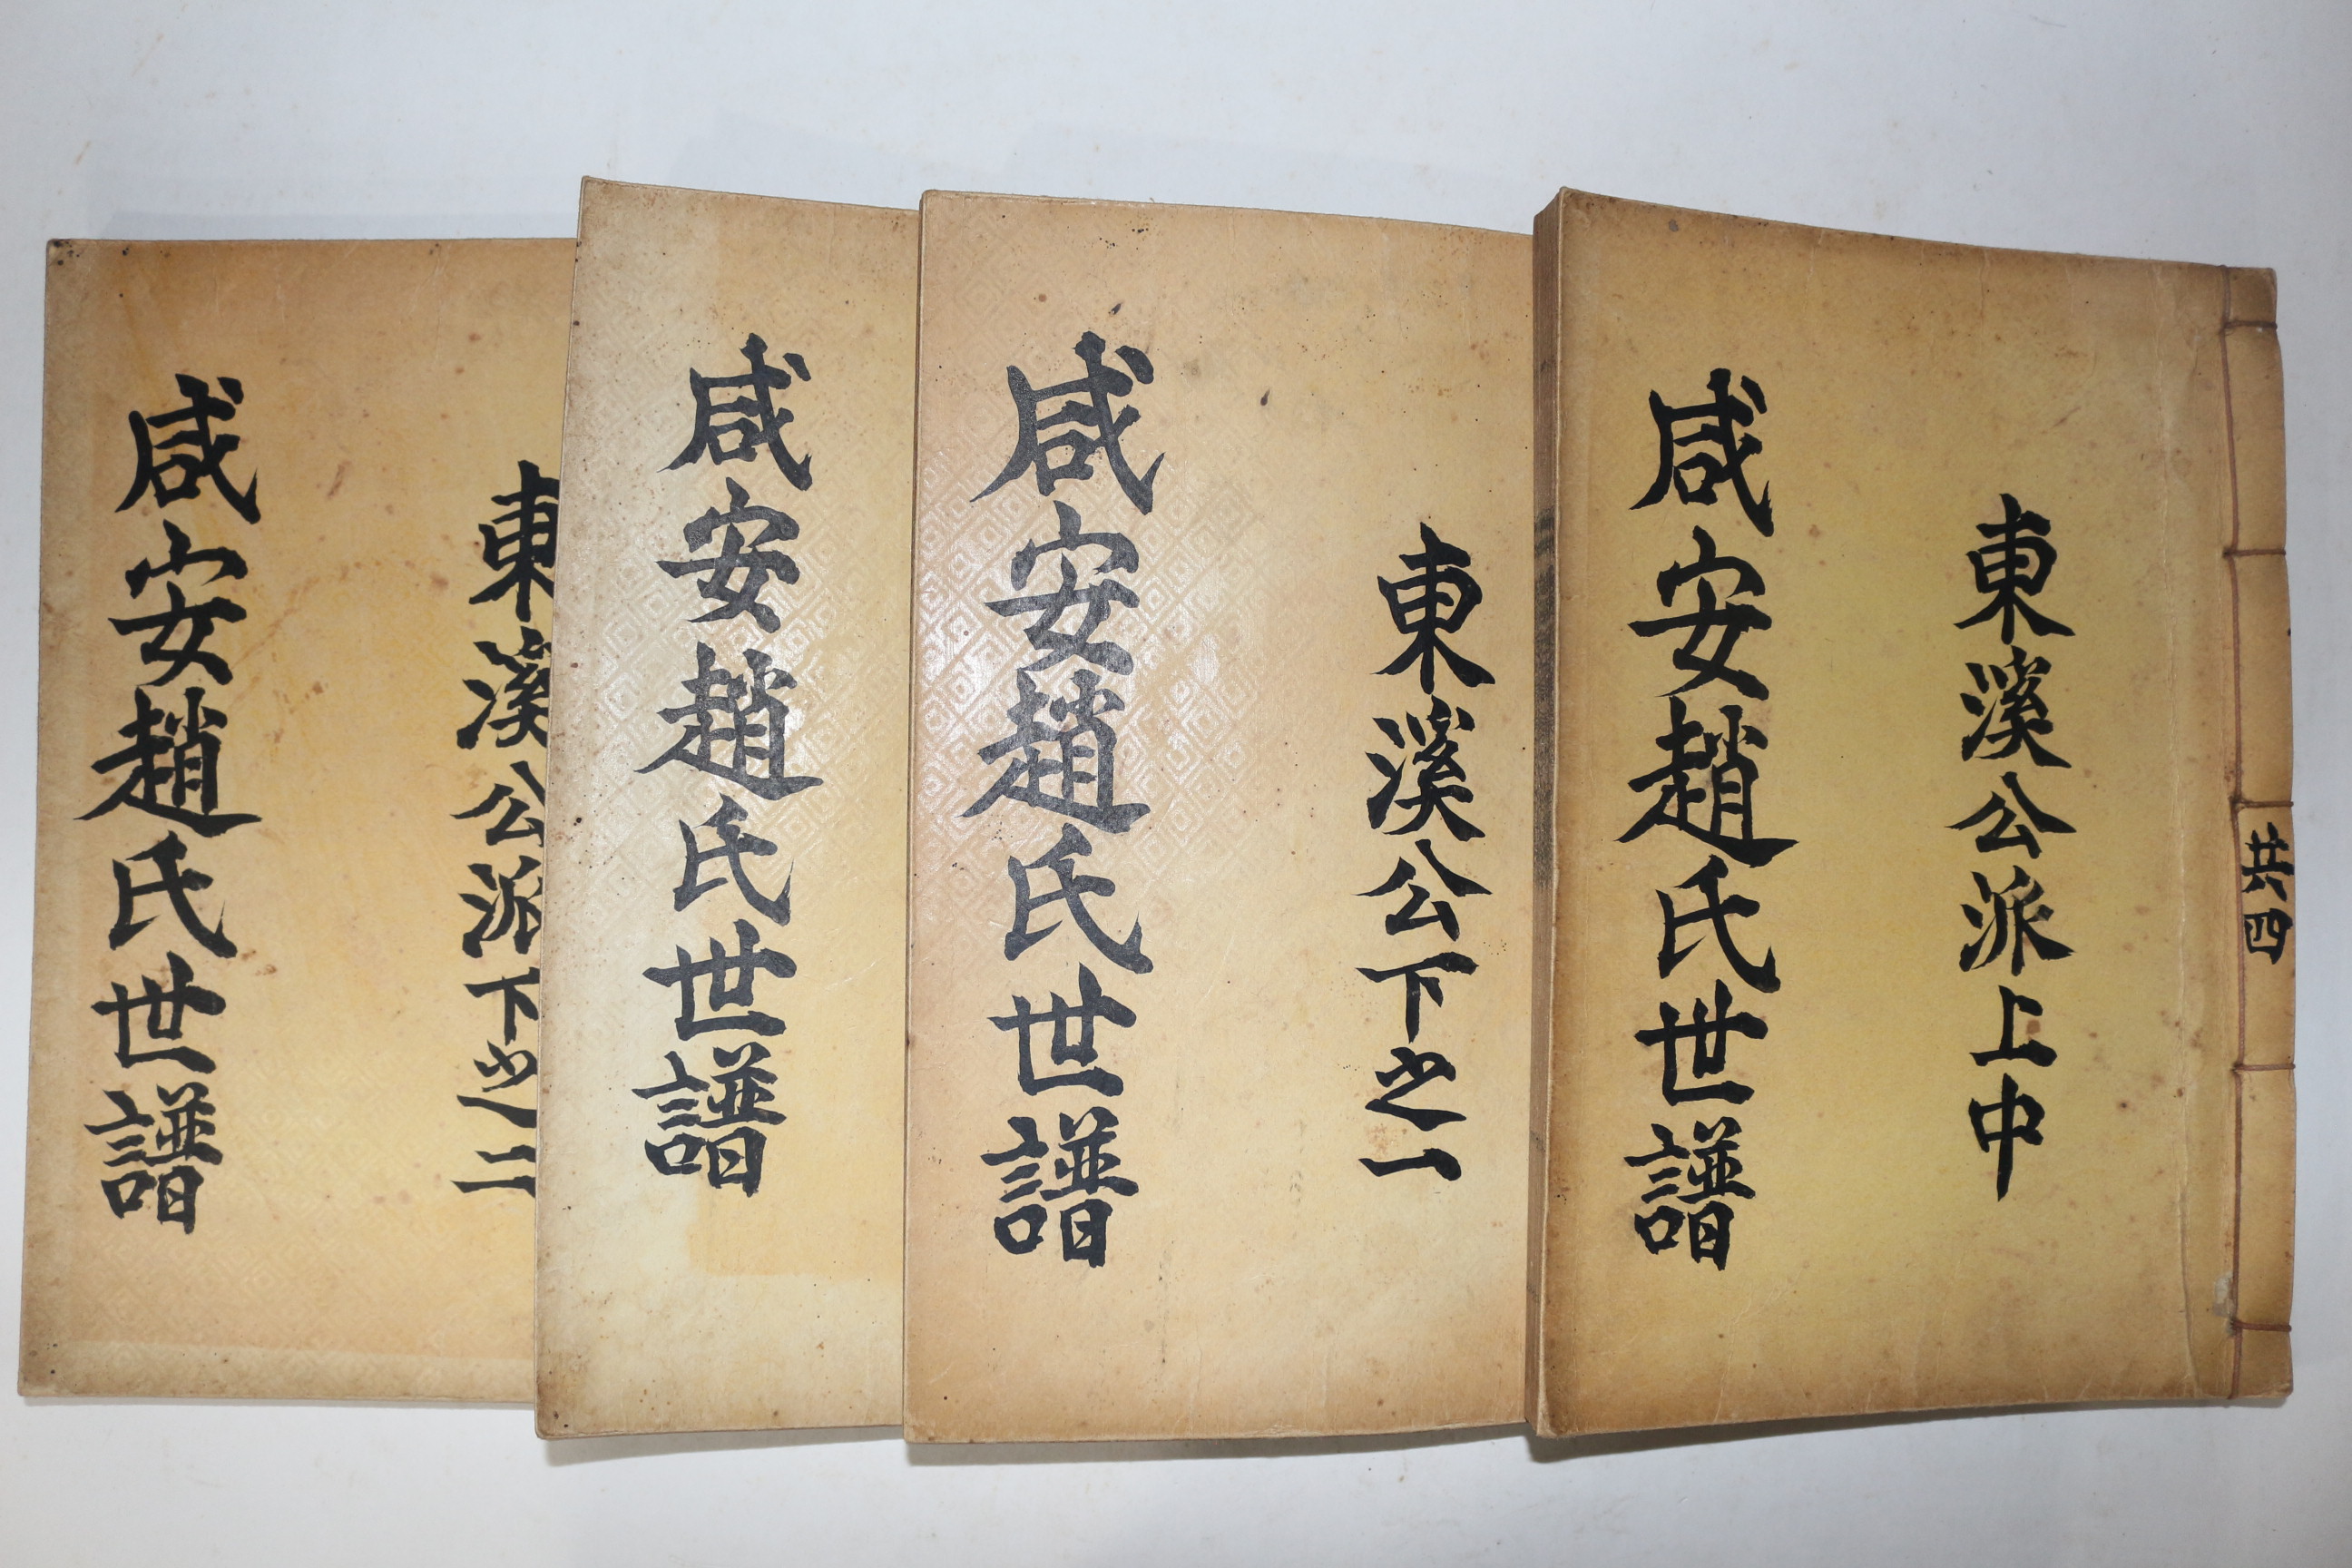 咸安趙氏世譜
東溪公派上中
共四
咸安趙氏世譜
東溪公下之一
咸安趙氏世譜
咸安趙氏世譜
東溪公派下之二